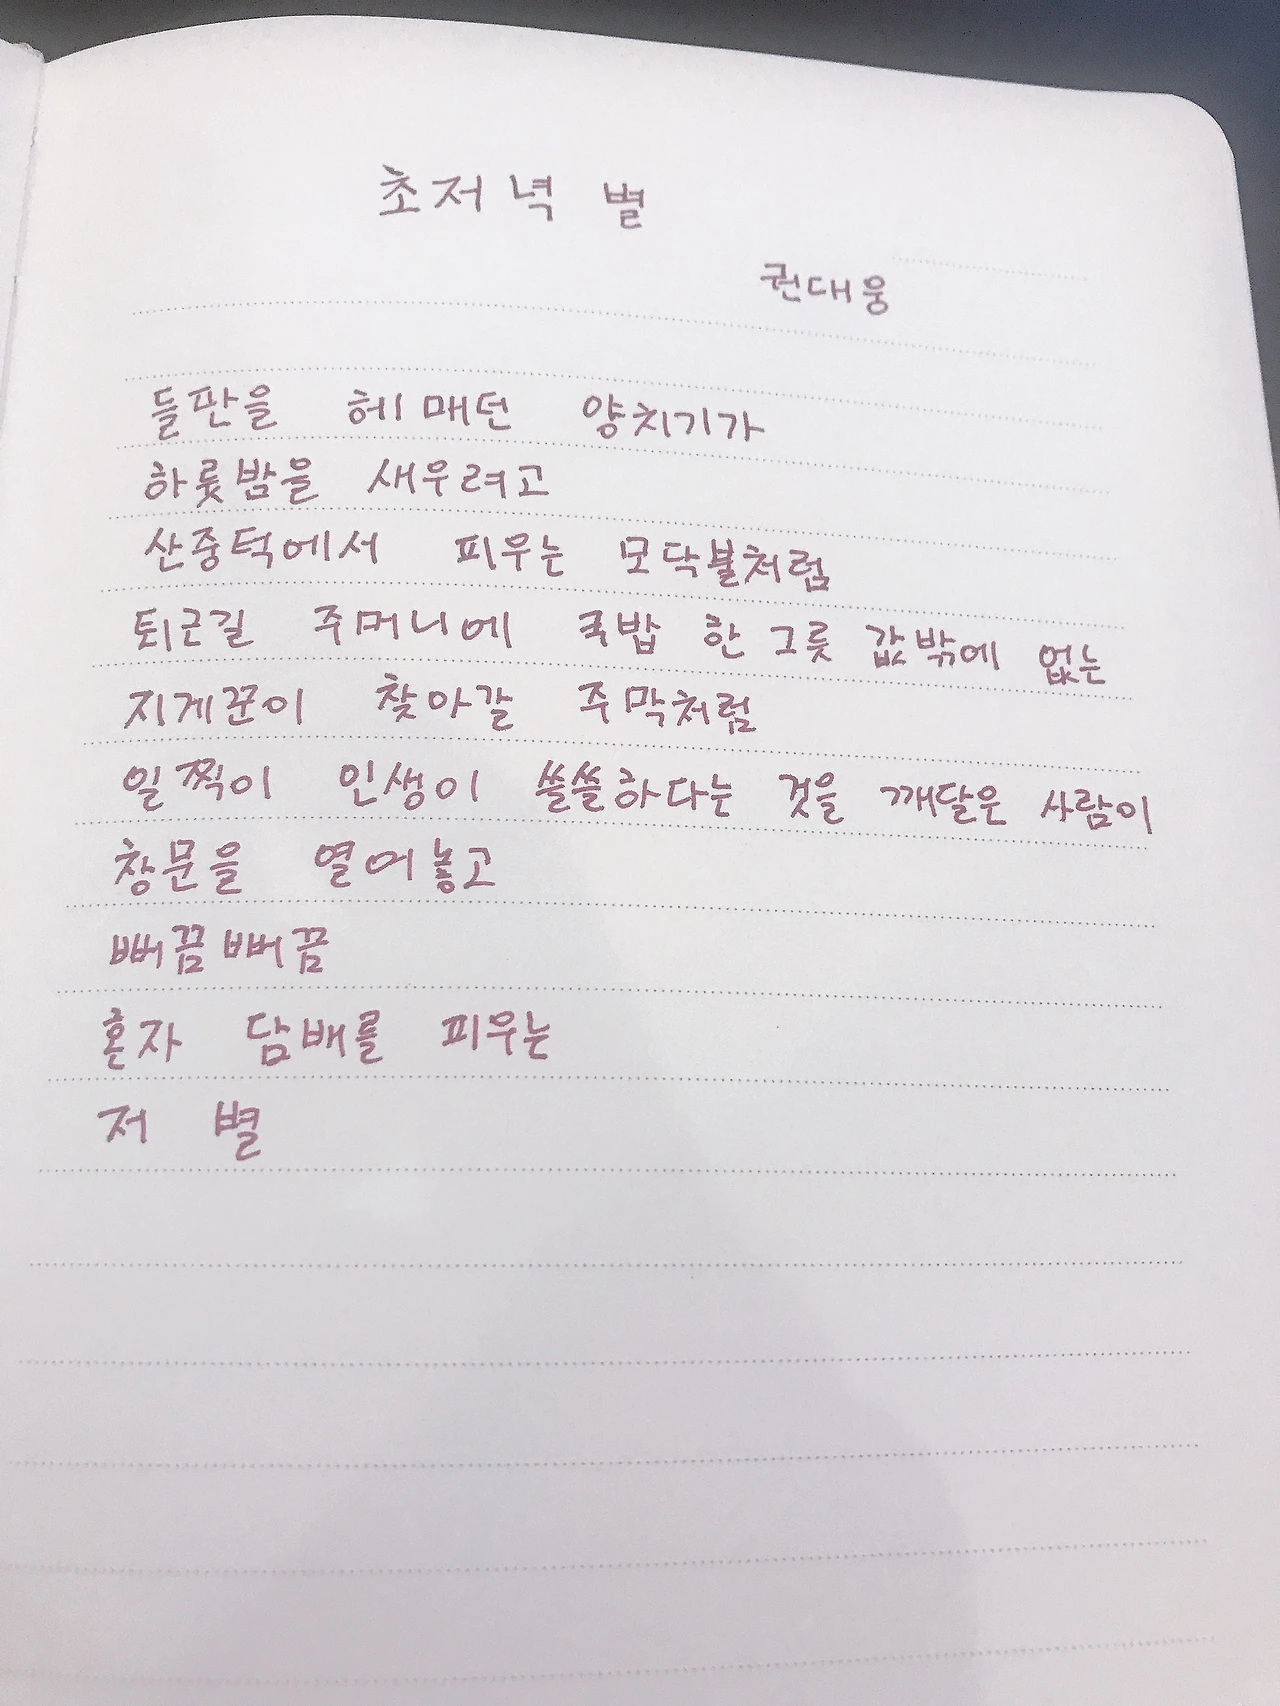 초저녁 별
권대웅
들판을 헤매던 양치기가
하룻밤을 새우려고
산중턱에서 피우는 모닥불처럼
퇴근길 주머니에 국밥 한 그릇 값밖에 없는
지게꾼이 찾아갈 주막처럼
일찍이 인생이 쓸쓸하다는 것을 깨달은 사람이
창문을 열어놓고
뻐끔뻐끔
혼자 담배를 피우는
저 별